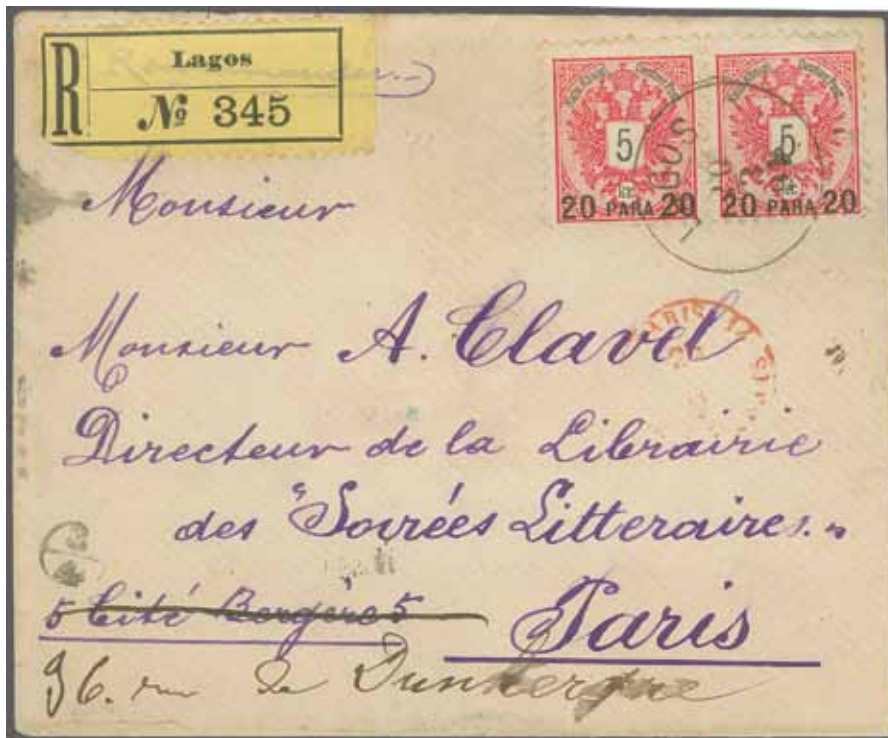 R
Lagos
№ 345
5
kr.
20 PARA 20
5
kr.
20 PARA 20
LAGOS
PARIS
Monsieur
Monsieur A. Clavel
Directeur de la Librairie
des "Soirées Litteraires."
5 Cité Bergère 5
Paris
96. rue de Dunkerque